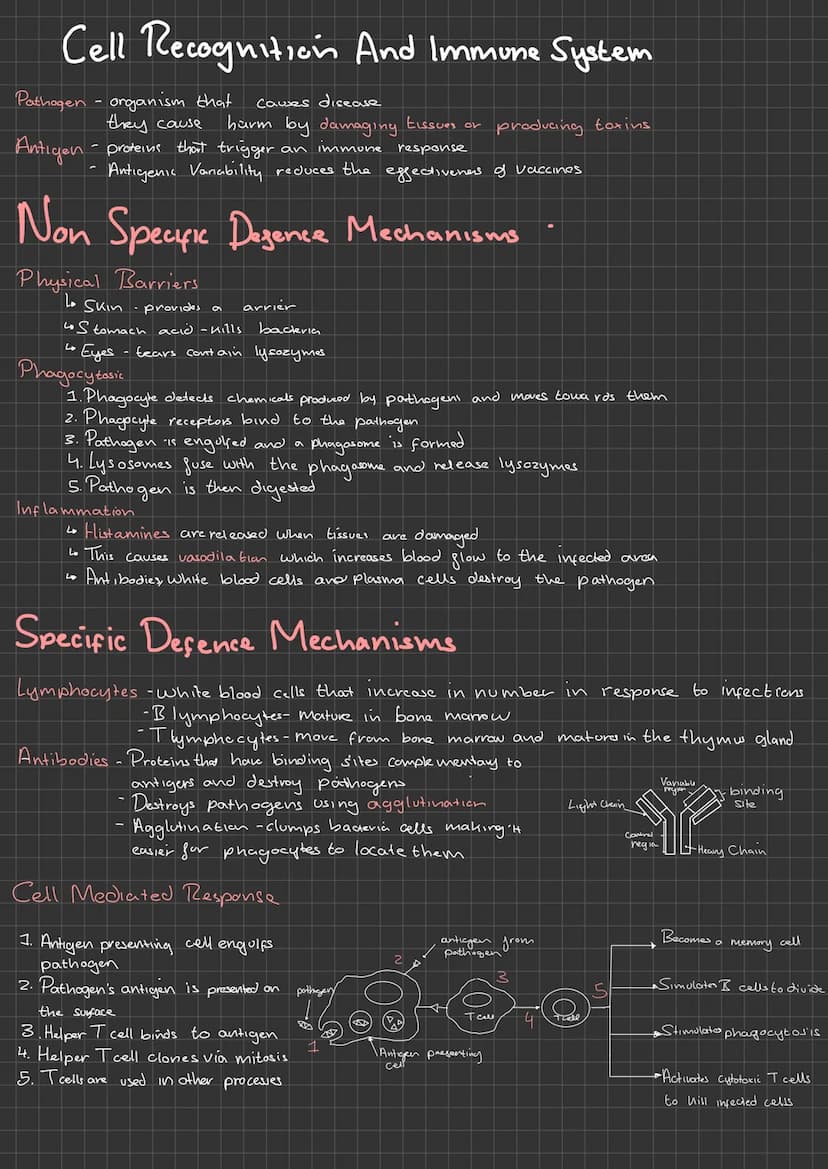 Cell Recognition And Immune System
Pathogen - organism that causes disease
they cause harm by damaging tissues or producing toxins
Antigen - proteins that trigger an immune response
- Antigenic Variability reduces the effectiveness of vaccines
Non Specific Defence Mechanisms
Physical Barriers
↳ Skin - provides a arrier
↳ Stomach acid - kills bacteria
↳ Eyes - tears contain lysozymes
Phagocytosis
1. Phagocyte detects chemicals produced by pathogens and moves towards them
2. Phagocyte receptors bind to the pathogen
3. Pathogen is engulfed and a phagosome is formed
4. Lysosomes fuse with the phagosome and release lysozymes
5. Pathogen is then digested
Inflammation
↳ Histamines are released when tissues are damaged
↳ This causes vasodilation which increases blood flow to the infected area
↳ Antibodies, white blood cells and plasma cells destroy the pathogen
Specific Defence Mechanisms
Lymphocytes - white blood cells that increase in number in response to infections
- B lymphocytes - mature in bone marrow
- T lymphocytes - move from bone marrow and mature in the thymus gland
Antibodies - Proteins that have binding sites complementary to
antigens and destroy pathogens
- Destroys pathogens using agglutination
- Agglutination - clumps bacteria cells making it
easier for phagocytes to locate them
Variable
region
binding
site
Light Chain
region
Heavy Chain
Cell Mediated Response
1. Antigen presenting cell engulfs
pathogen
2. Pathogen's antigen is presented on
the surface
3. Helper T cell binds to antigen
4. Helper T cell clones via mitosis
5. T cells are used in other processes
pathogen
1
2
antigen from
pathogen
Antigen presenting
cell
3
T cell
4
T cell
5
Becomes a memory cell
Simulates B cells to divide
Stimulate phagocytosis
Activates cytotoxic T cells
to kill infected cells